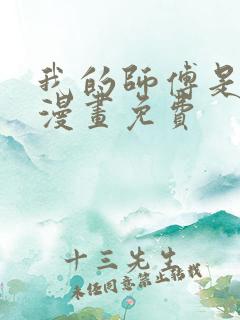 我的師傅是
漫畫免費
十三先生
未经同意禁止转载